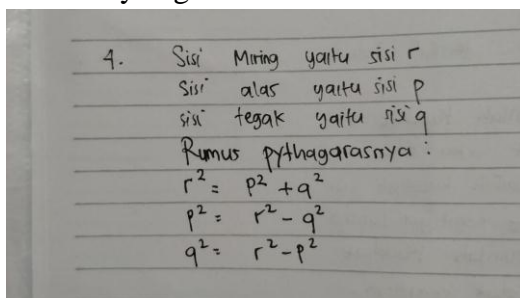 4. Sisi Miring yaitu sisi r
Sisi alas yaitu sisi p
sisi tegak yaitu sisi q
Rumus pythagarasnya :
r² = p² + q²
p² = r² - q²
q² = r² - p²